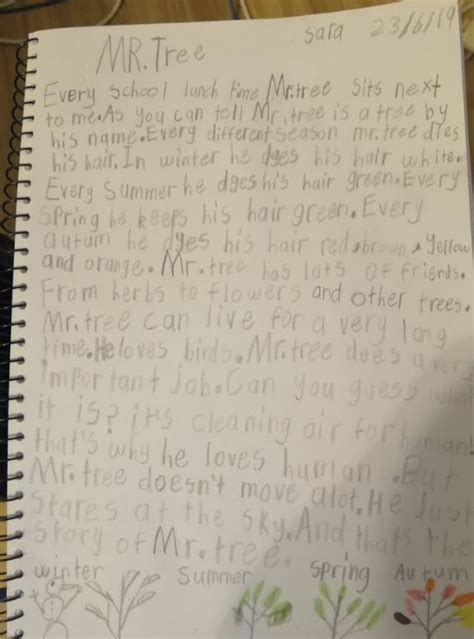 Sara 23/6/19
MR.Tree
Every School lunch time Mr.tree Sits next
to me.As you can tell Mr.tree is a tree by
his name.Every different season mr.tree dies
his hair.In winter he dyes his hair white.
Every Summer he dyes his hair green.Every
Spring he keeps his hair green.Every
autum he dyes his hair red,brown, Yellow
and orange.Mr.tree has lots of friends.
From herbs to flowers and other trees.
Mr.tree can live for a very long
time.He loves birds.Mr.tree does a very
important job.Can you guess what
it is? it's cleaning air for human!
that's why he loves human .But
Mr.tree doesn't move alot.He Just
Stares at the sky.And thats the
Story of Mr.tree.
winter Summer Spring Autum